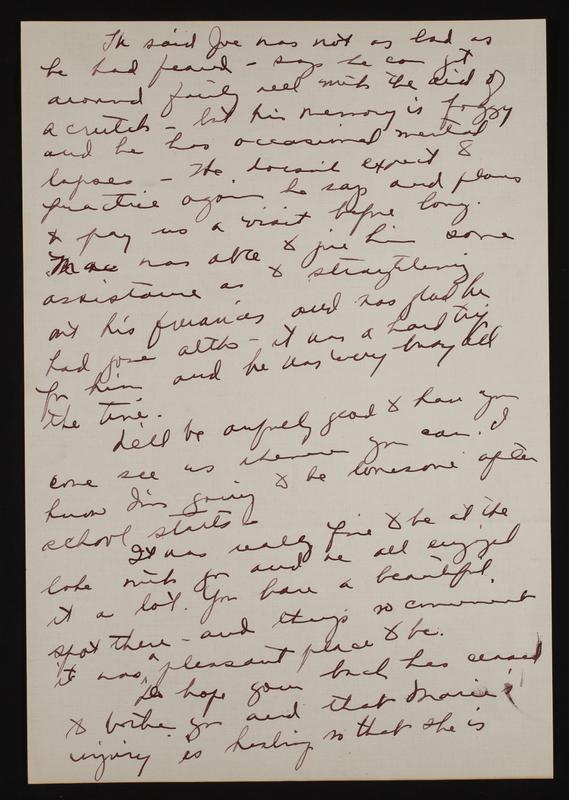 He said Joe was not as bad as
he had feared – says he can get
around fairly well with the aid of
a crutch – but his memory is foggy
and he has occasional mental
lapses – He doesn't expect to
practice again he says and plans
to pay us a visit before long.
Mac was able to give him some
assistance as to straightening
out his finances and was glad he
had gone altho – it was a hard trip
for him and he was very busy all
the time.
It'll be awfully good to have you
come see us whenever you can. I
know I'm going to be lonesome after
school starts –
It was really fine to be at the
lake with you and we all enjoyed
it a lot. You have a beautiful
spot there – and things so convenient
it was a pleasant place to be.
Do hope your back has ceased
to bother you and that Marie's
injury is healing so that she is